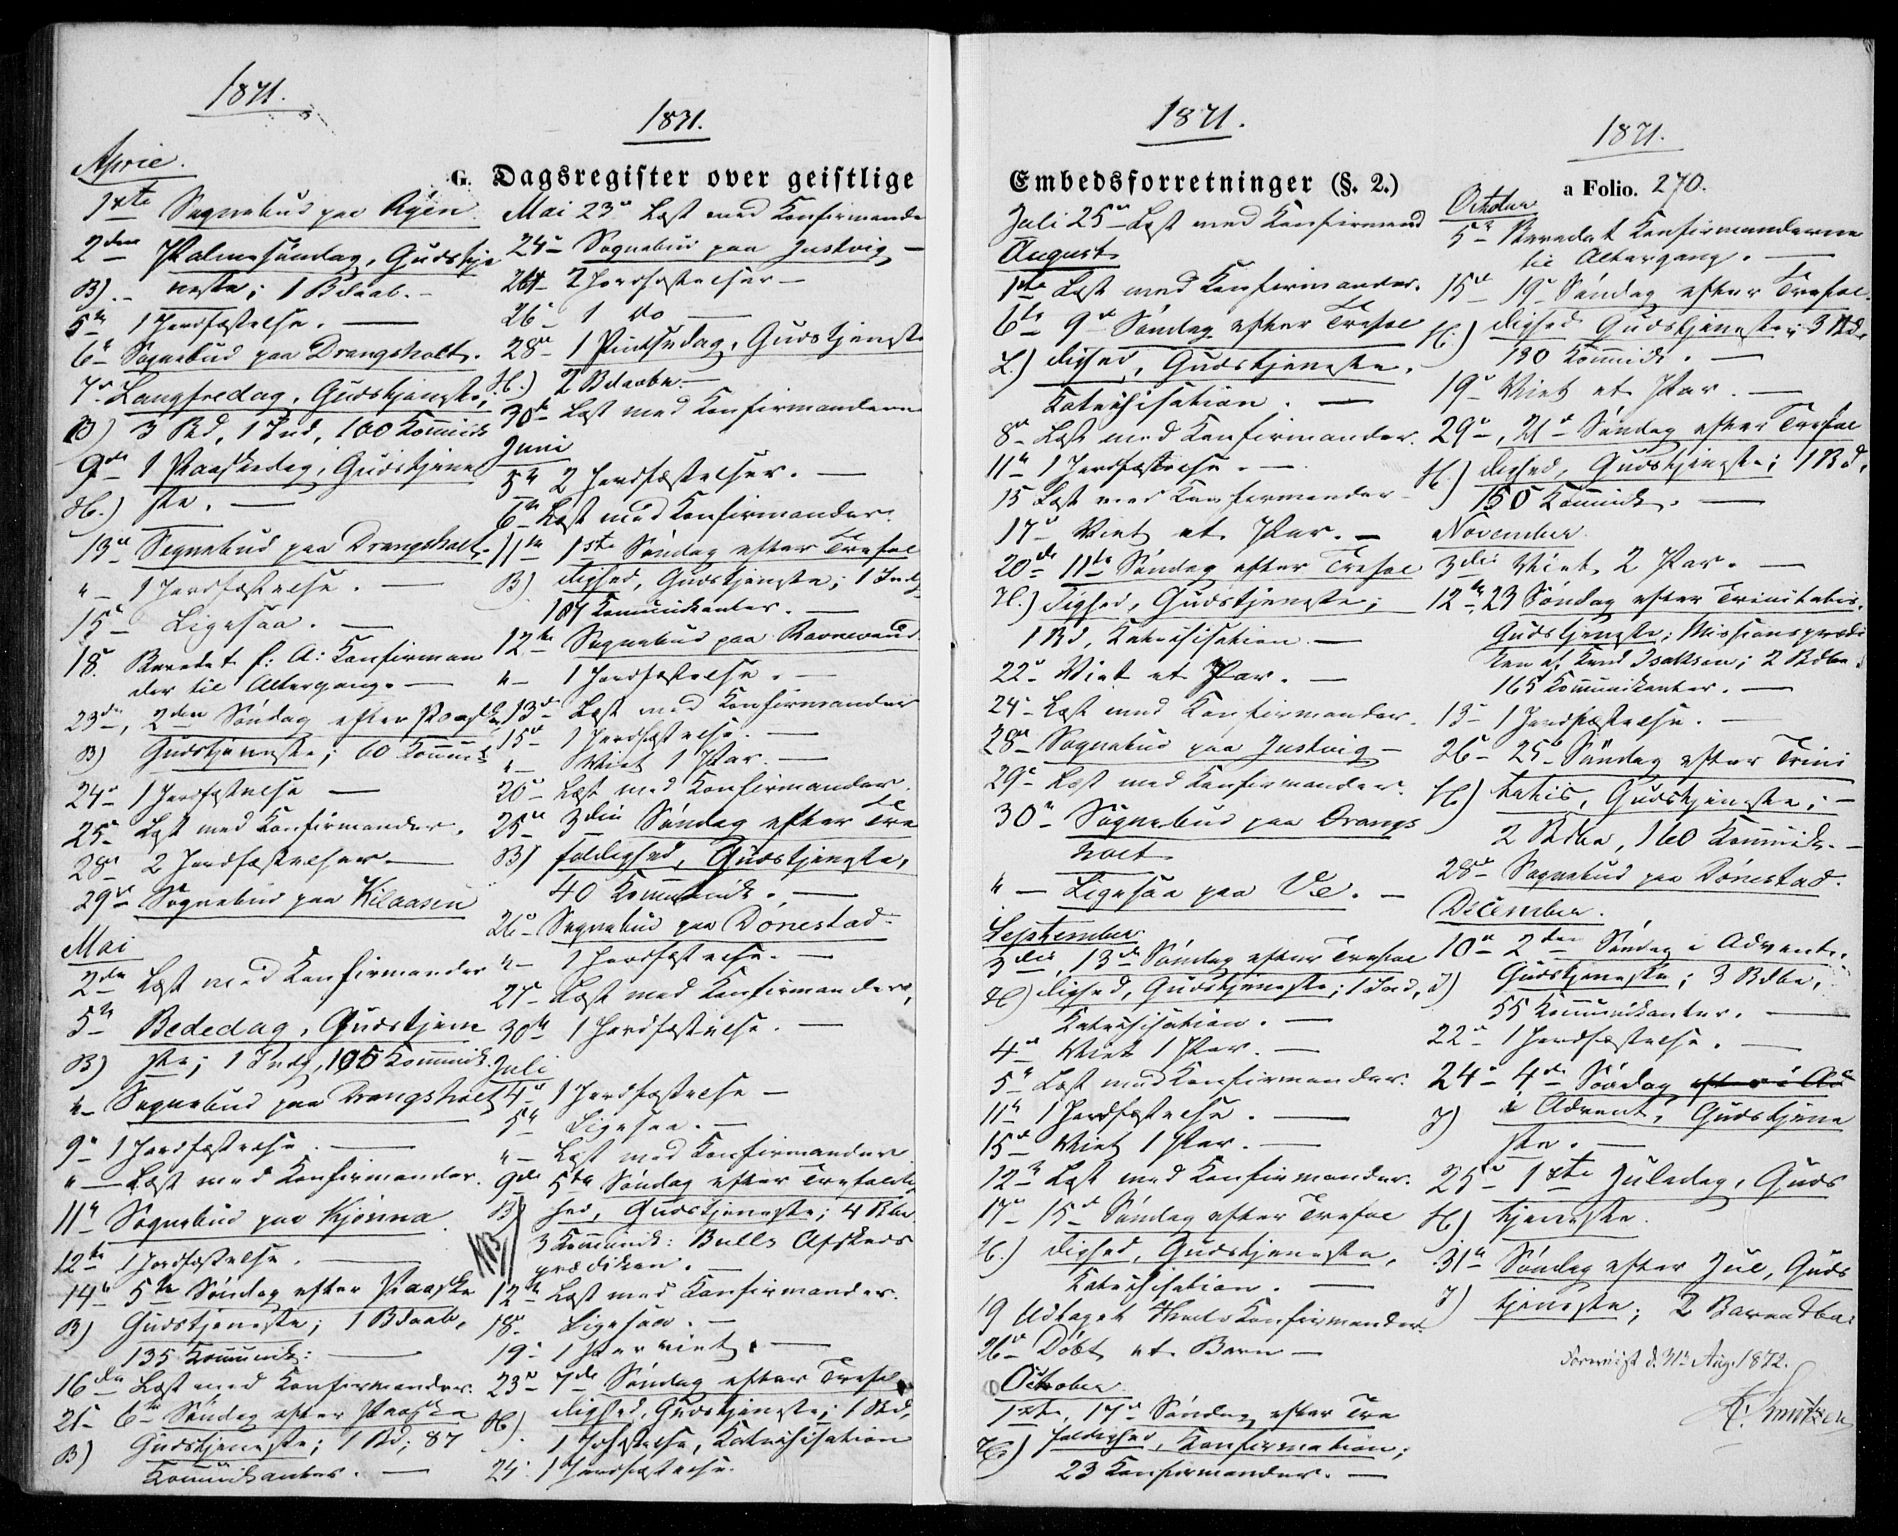 1871.
April.
1ste Sognebud paa Ryen.
2den Palmesøndag, Gudstje
B). neste; 1 Bdaab.
5te 1 Jordfæstelse.
6te Sognebud paa Drangsholt.
7de Langfredag, Gudstjeneste;
B) 3 Bd, 1 Ind, 100 Kommik
9de 1 Paaskedag, Gudstjene
H.) ste.
13de Sognebud paa Drangsholt.
"– 1 Jordfæstelse.
15de Ligesaa.
18. Beredet f: A: Konfirman
der til Altergang.
23de, 2den Søndag efter Paaske
B) Gudstjeneste; 60 Kommk
24de 1 Jordfæstelse
25de Læst med Konfirmander.
28de 2 Jordfæstelser
29de Sognebud paa Kilaasen
Mai
2den Læst med Konfirmander
5te Bededag, Gudstjene
B) ste; 1 Indg, 105 Kommik.
"– Sognebud paa Drangsholt
9de 1 Jordfæstelse.
"– Læst med Konfirmander.
11te Sognebud paa Kjønna.
12te 1 Jordfæstelse.
14de 5te Søndag efter Paaske
B) Gudstjeneste; 1 Bdaab,
135 Kommunik:
16de Læst med Konfirmander.
21de 6te Søndag efter Paaske
B) Gudstjeneste; 1 Bd; 87
Kommunikanter.
1871.
G. Dagsregister over geistlige
Mai 23de Læst med Konfirmande
24de Sognebud paa Justvig
26de 2 Jordfæstelser
26de 1 do
28de 1 Pintsedag, Gudstjeneste
H.) 2 Bdaabe.
30de Læst med Konfirmandern
Juni
5te 2 Jordfæstelser.
6te Læst med Konfirmander.
11te 1ste Søndag efter Trefol
B) dighed, Gudstjeneste; 1 Indg
101 Kommunikanter.
12te Sognebud paa Ravnevand.
"– 1 Jordfæstelse.
13de Læst med Konfirmander
15de 1 Jordfæstelse.
"– Viet 1 Par.
20de Læst med Konfirmander.
25de 3die Søndag efter Tre
B) foldighed, Gudstjeneste,
40 Kommunik.
26de Sognebud paa Dønestad.
"– 1 Jordfæstelse.
27de Læst med Konfirmander,
30te 1 Jordfæstelse.
Juli
4de 1 Jordfæstelse
5te Ligesaa.
"– Læst med Konfirmander
9de 5te Søndag efter Trefoldig
B) hed, Gudstjeneste; 4 Bbe
NB 3 Kommunik: Bulls Afskeds
prædiken.
12te Læst med Konfirmander.
18de Ligesaa.
19de 1 Par viet.
23de 7de Søndag efter Trefol
H). dighed, Gudstjeneste; 1 Bd,
1 Jofæstelse, Katechisation
24de 1 Jordfæstelse.
1871.
Embedsforretninger (§. 2.)
Juli 25de Læst med Konfirmand
August
1ste Læst med Konfirmander.
6te 9de Søndag efter Trefol
H.) dighed, Gudstjeneste.
Katechisation.
8de Læst med Konfirmander.
11te 1 Jordfæstelse.
15 Læst med Konfirmander
17de Viet et Par.
20de 11te Søndag efter Trefol
H.) dighed, Gudstjeneste;
1 Bd, Katechisation
22de Viet et Par.
24de Læst med Konfirmander.
28de Sognebud paa Justvig
29de Læst med Konfirmander.
30te Sognebud paa Drangs
holt
"– Ligesaa paa Ve.
September.
3die, 13de Søndag efter Trefol
H) dighed, Gudstjeneste; 1 Ind,
Katechisation.
4de Viet 1 Par.
5te Læst med Konfirmander.
11te 1 Jordfæstelse.
15de Viet 1 Par.
12te Læst med Konfirmander.
17de 15de Søndag efter Trefol
H.) dighed, Gudstjeneste,
Katechisation.
19 Udtaget Konfirmander.
26de Døbt et Barn
October
1ste, 17de Søndag efter Tre
H) foldighed, Konfirmation;
23 Konfirmander.
1871.
a Folio. 270.
October
5te Beredet Konfirmanderne
til Altergang.
15de 19de Søndag efter Trefol
H.) dighed Gudstjeneste; 3 Bd,
180 Kommik.
19de Viet et Par.
29de, 21de Søndag efter Trefol
H.) dighed, Gudstjeneste; 1 Bd,
150 Kommik.
November
3die Viet 2 Par.
12te 23 Søndag efter Trinitatis.
Gudstjeneste; Missionsprædi
ken af Kand Isaksen; 2 Bdbe
165 Kommunikanter.
13de 1 Jordfæstelse.
26de 25de Søndag efter Trini
H) tatis, Gudstjeneste;
2 Bdbe, 160 Kommik.
28de Sognebud paa Dønestad.
December.
10de 2den Søndag i Advent.
J) Gudstjeneste; 3 Bdbe,
55 Kommunikanter.
22de 1 Jordfæstelse.
24de 4de Søndag efter i Ad
J) i Advent, Gudstjene
ste.
25de 1ste Juledag, Guds
H) tjeneste.
31te Søndag efter Jul, Guds
J) tjeneste; 2 Barnedbe.
Forevist d. 31te Aug. 1872.